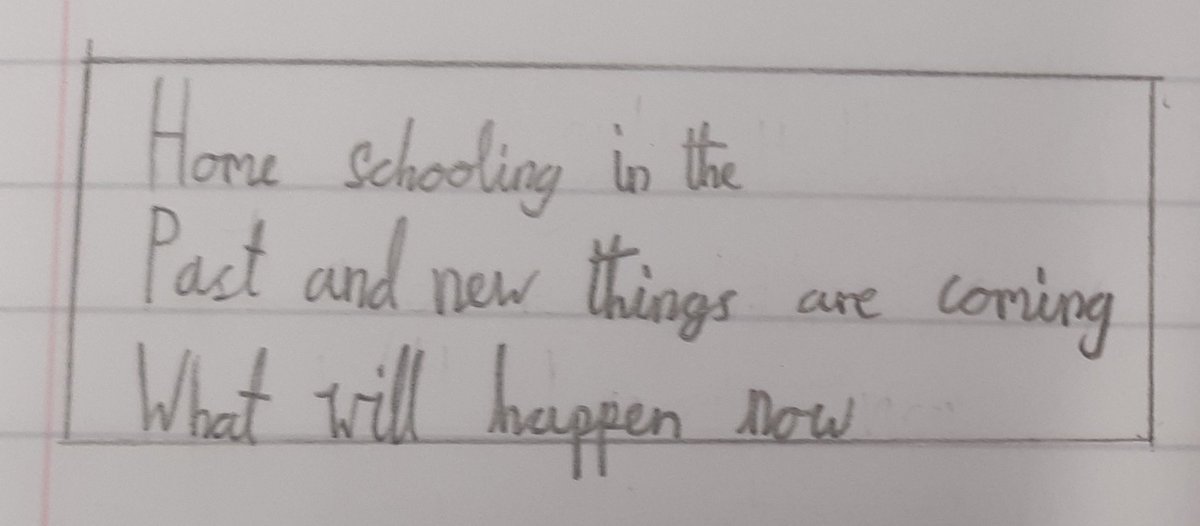 Home schooling in the
Past and new things are coming
What will happen now